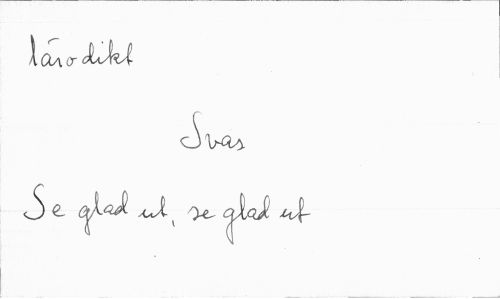 lärodikt
Svas
Se glad ut, se glad ut